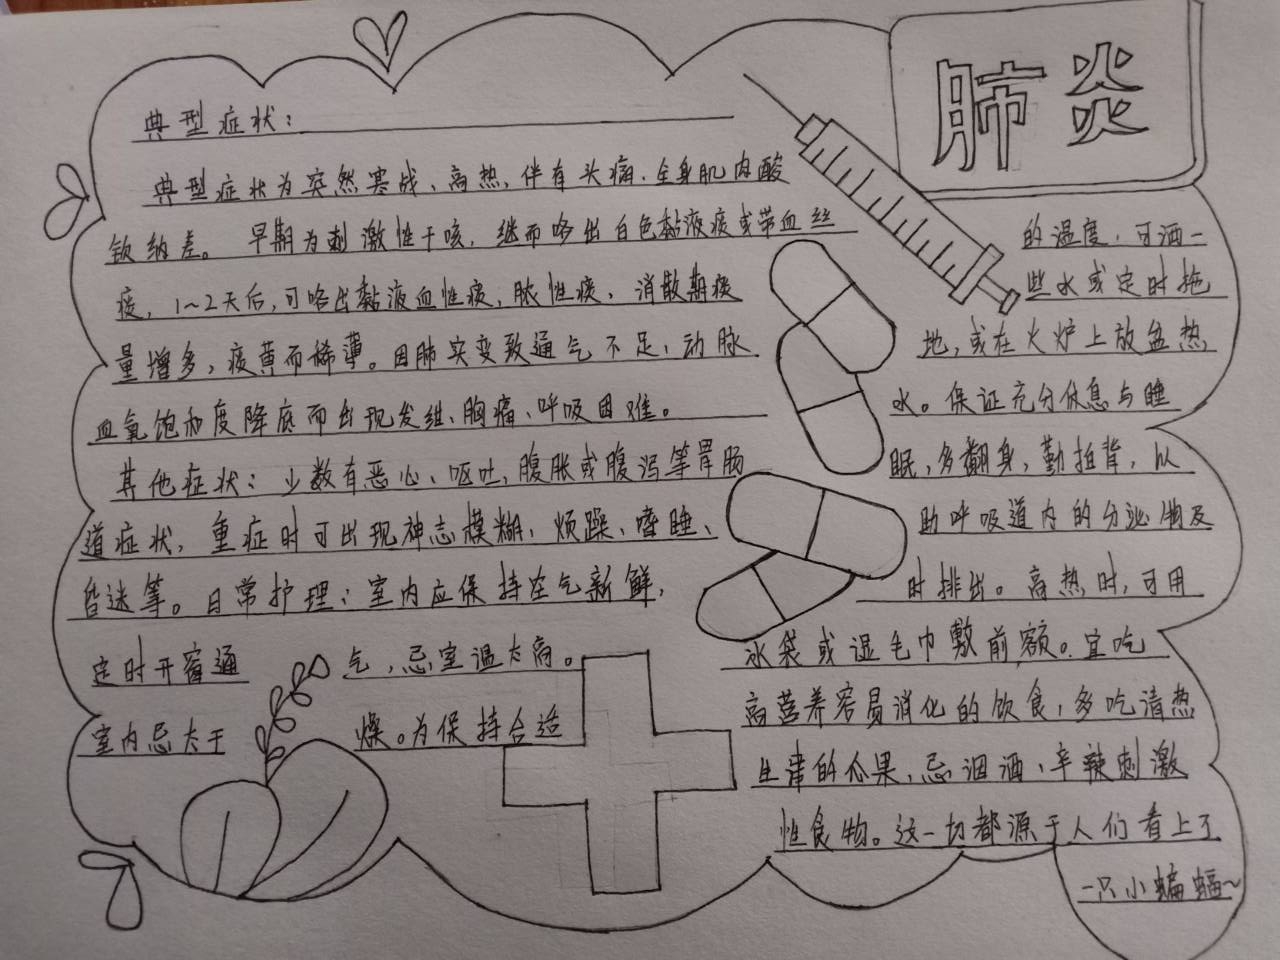 肺炎
典型症状：
典型症状为突然寒战、高热，伴有头痛、全身肌肉酸
软纳差。早期为刺激性干咳，继而咯出白色黏液痰或带血丝
痰，1~2天后，可咯出黏液血性痰，脓性痰，消散期痰
量增多，痰黄而稀薄。因肺实变致通气不足，动脉
血氧饱和度降底而出现发绀、胸痛、呼吸困难。
其他症状：少数有恶心、呕吐，腹胀或腹泻等胃肠
道症状，重症时可出现神志模糊、烦躁、嗜睡、
昏迷等。日常护理：室内应保持空气新鲜，
定时开窗通气，忌室温太高。
室内忌太干燥。为保持合适
的温度，可洒一
些水或定时拖
地，或在火炉上放盆热
水。保证充分休息与睡
眠，多翻身，勤拍背，以
助呼吸道内的分泌物及
时排出。高热时，可用
冰袋或湿毛巾敷前额。宜吃
高营养容易消化的饮食，多吃清热
生津的瓜果，忌烟酒、辛辣刺激
性食物。这一切都源于人们看上了
一只小蝙蝠~